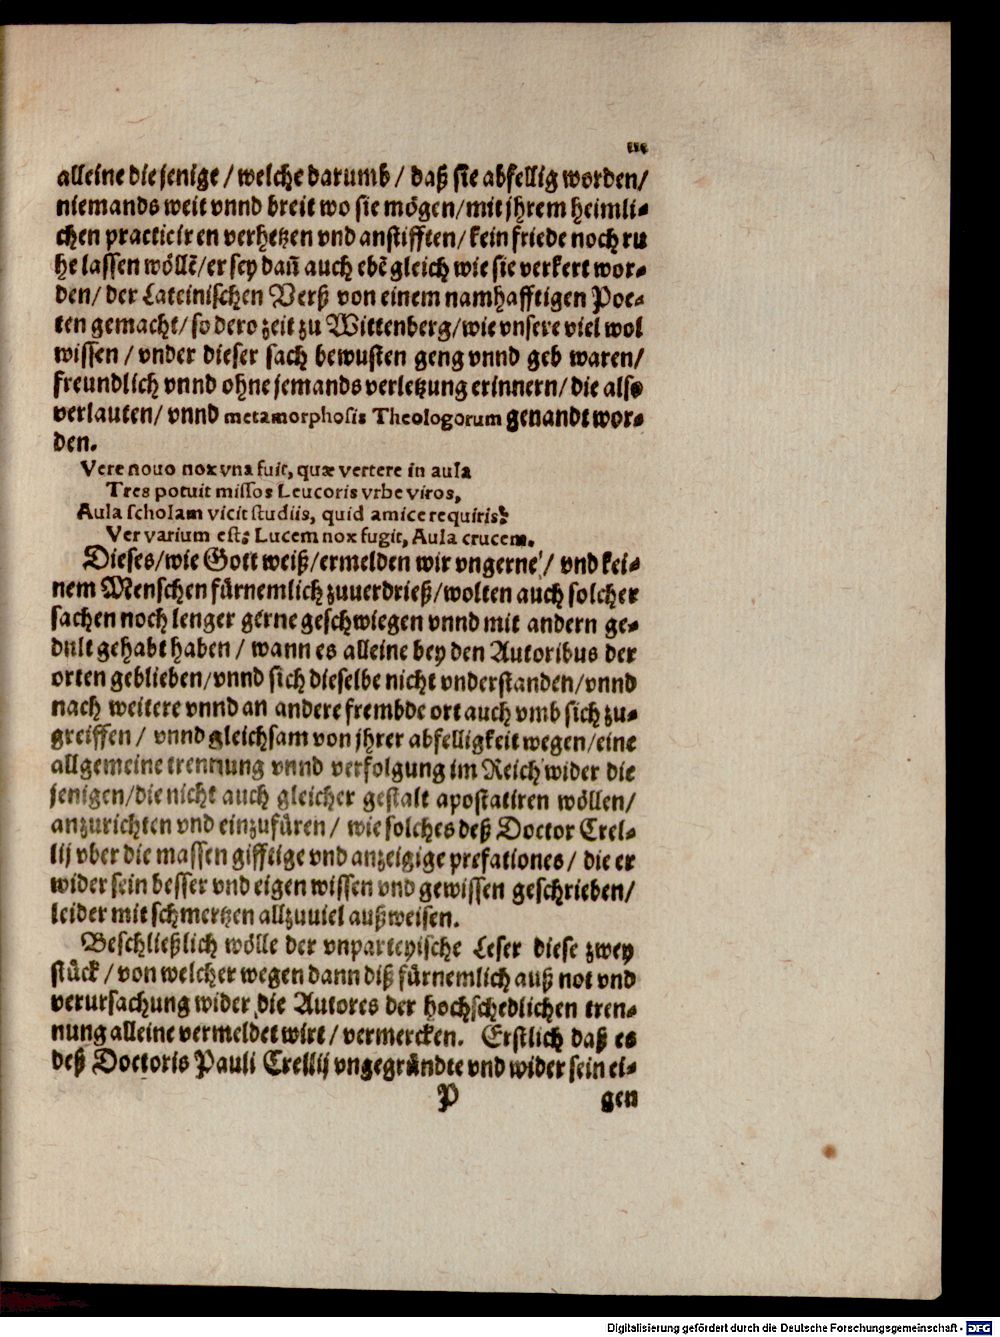 alleine die jenige / welche darumb / daß sie abfellig worden/
niemands weit vnnd breit wo sie mögen/mit jhrem heimli-
chen practiciren verhetzen vnd anstifften/ kein friede noch ru
he lassen wöllẽ/er sey dañ auch ebẽ gleich wie sie verkert wor-
den/ der Lateinischen Verß von einem namhafftigen Poe-
ten gemacht/ so dero zeit zu Wittenberg/wie vnsere viel wol
wissen / vnder dieser sach bewusten geng vnnd geb waren/
freundlich vnnd ohne jemands verletzung erinnern/ die also
verlauten/ vnnd metamorphosis Theologorum genandt wor-
den.
Vere nouo nox vna fuit, quæ vertere in aula
Tres potuit missos Leucoris vrbe viros,
Aula scholam vicit studiis, quid amice requiris?
Ver varium est: Lucem nox fugit, Aula crucem.
Dieses/wie Gott weiß/ermelden wir vngerne / vnd kei-
nem Menschen fürnemlich zuuerdrieß/wolten auch solcher
sachen noch lenger gerne geschwiegen vnnd mit andern ge-
dult gehabt haben / wann es alleine bey den Autoribus der
orten geblieben/vnnd sich dieselbe nicht vnderstanden/vnnd
nach weitere vnnd an andere frembde ort auch vmb sich zu-
greiffen / vnnd gleichsam von jhrer abfelligkeit wegen/eine
allgemeine trennung vnnd verfolgung im Reich wider die
jenigen/die nicht auch gleicher gestalt apostatiren wöllen/
anzurichten vnd einzufüren / wie solches deß Doctor Crel-
lij vber die massen gifftige vnd anzeigige prefationes/ die er
wider sein besser vnd eigen wissen vnd gewissen geschrieben/
leider mit schmertzen allzuuiel außweisen.
Beschließlich wölle der vnparteyische Leser diese zwey
stück / von welcher wegen dann diß fürnemlich auß not vnd
verursachung wider die Autores der hochschedlichen tren-
nung alleine vermeldet wirt / vermercken. Erstlich daß es
deß Doctoris Pauli Crellij vngegründte vnd wider sein ei-
P gen
Digitalisierung gefördert durch die Deutsche Forschungsgemeinschaft - DFG